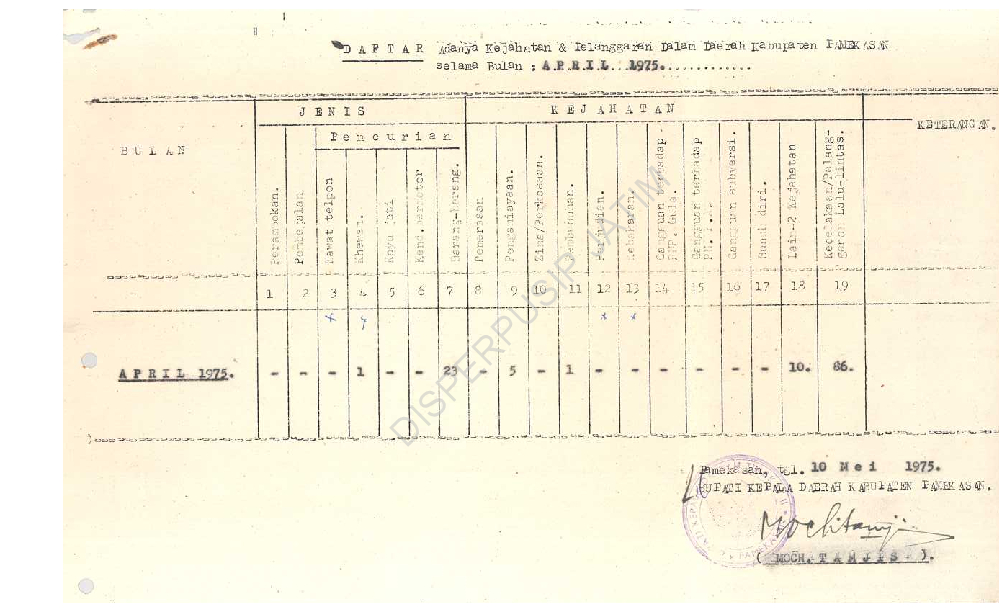 DAFTAR Adanya Kejahatan & Pelanggaran Dalam Daerah Kabupaten PAMEKASAN
selama Bulan : APRIL 1975.............
BULAN
JENIS KEJAHATAN
KETERANGAN.
Pencurian
Perampokan.
Pembegalan
Kawat telpon
Khewan.
Kayu jati
Kend.bermotor
Barang-barang.
Pemerasan
Penganiayaan.
Zina/Perkosaan.
Pembunuhan.
Perjudian.
Kebakaran.
Gangguan terhadap
PNP. Gula.
Gangguan terhadap
Gangguan subversi.
Bunuh diri.
Lain-2 Kejahatan
Kecelakaan/Pelang-
garan Lalu-lintas.
1 2 3 4 5 6 7 8 9 10 11 12 13 14 15 16 17 18 19
x x x
APRIL 1975. - - - 1 - - 23 - 5 - 1 - - - - - - 10. 86.
Pamekasan, tgl. 10 Mei 1975.
BUPATI KEPALA DAERAH KABUPATEN PAMEKASAN.
(MOCH.TAHJIS).
DISPERPUSIP JATIM